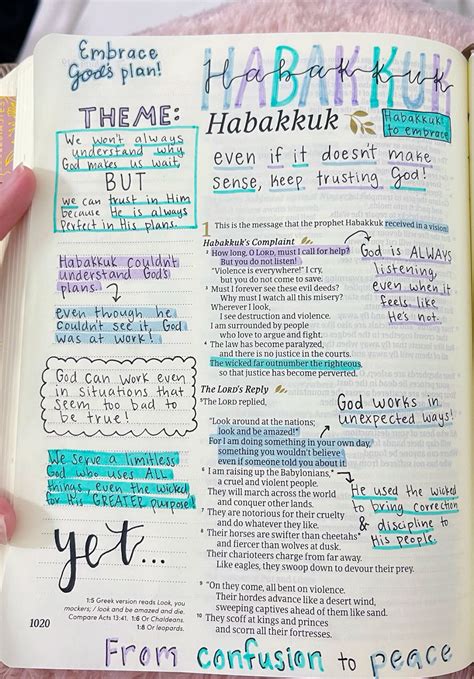 Embrace
God's plan!
HABAKKUK
Habakkuk
THEME:
We won't always
understand why
God makes us wait,
BUT
we can trust in Him
because He is always
perfect in His plans.
Habakkuk
Habakkuk:
to embrace
even if it doesn't make
sense, keep trusting God!
1 This is the message that the prophet Habakkuk received in a vision.
Habakkuk's Complaint
2 How long, O LORD, must I call for help?
But you do not listen!
"Violence is everywhere!" I cry,
but you do not come to save.
3 Must I forever see these evil deeds?
Why must I watch all this misery?
Wherever I look,
I see destruction and violence.
I am surrounded by people
who love to argue and fight.
4 The law has become paralyzed,
and there is no justice in the courts.
The wicked far outnumber the righteous,
so that justice has become perverted.
God is ALWAYS
listening,
even when it
feels like
He's not.
Habakkuk couldn't
understand God's
plans.
even though he
couldn't see it, God
was at work!
God can work even
in situations that
seem too bad to
be true!
We serve a limitless
God who uses ALL
things, even the wicked
for His GREATER purpose!
yet...
The LORD's Reply
5 The LORD replied,
"Look around at the nations;
look and be amazed!*
For I am doing something in your own day,
something you wouldn't believe
even if someone told you about it.
6 I am raising up the Babylonians,*
a cruel and violent people.
They will march across the world
and conquer other lands.
7 They are notorious for their cruelty
and do whatever they like.
8 Their horses are swifter than cheetahs*
and fiercer than wolves at dusk.
Their charioteers charge from far away.
Like eagles, they swoop down to devour their prey.
9 "On they come, all bent on violence.
Their hordes advance like a desert wind,
sweeping captives ahead of them like sand.
10 They scoff at kings and princes
and scorn all their fortresses.
God works in
unexpected ways!
He used the wicked
to bring correction
& discipline to
His people.
1:5 Greek version reads Look, you
mockers; / look and be amazed and die.
Compare Acts 13:41. 1:6 Or Chaldeans.
1:8 Or leopards.
1020
From confusion to peace